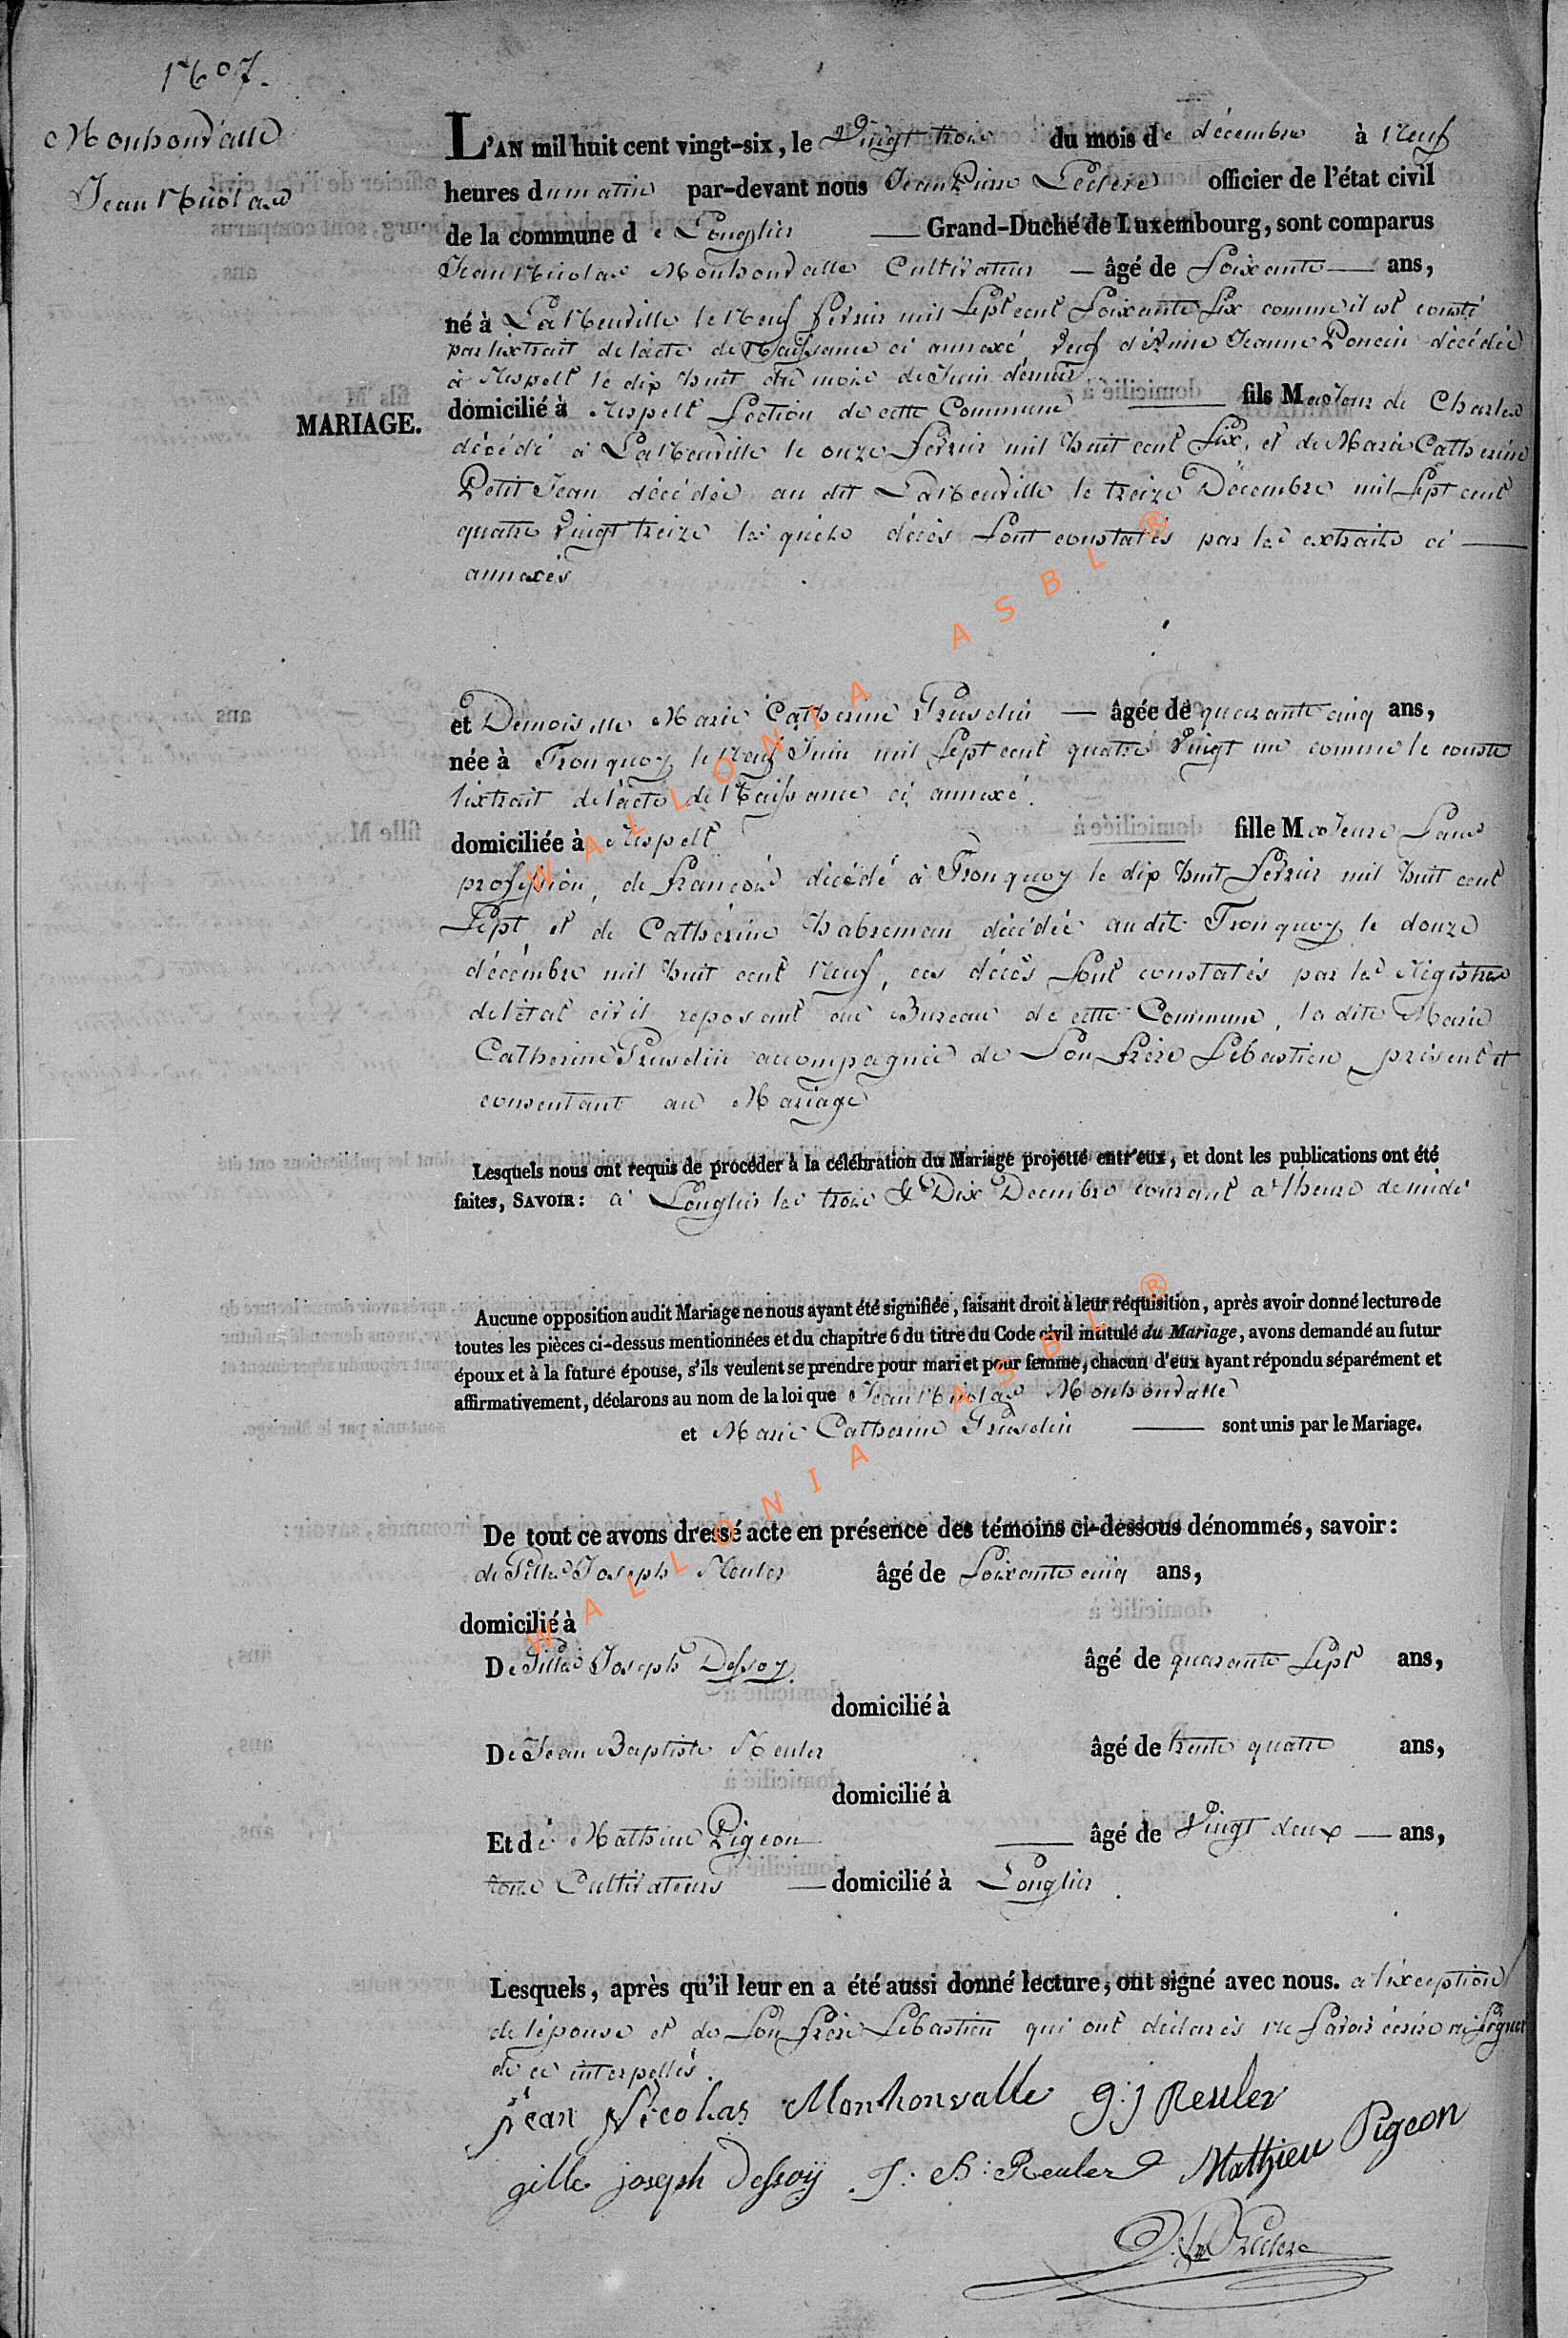 1607.
Monhonvalle
Jean Nicolas
MARIAGE.
L'AN mil huit cent vingt-six, le Vingt trois du mois de décembre à Neuf
heures du matin par-devant nous Jean Pierre Leclere officier de l'état civil
de la commune de Longlier Grand-Duché de Luxembourg, sont comparus
Jean Nicolas Monhonvalle Cultivateur âgé de Soixante ans,
né à La Neuville le Neuf fevrier mil Sept cent Soixante Six comme il est consté
par lextrait de lacte de Naissance ci annexé, Veuf d'Anne Jeanne Poncin décédée
à Respelt le dix huit du mois de Juin dernier
domicilié à Respelt Section de cette Commune fils Majeur de Charles
décédé à La Neuville le onze fevrier mil huit cent Six, et de Marie Catherine
Petit Jean décédée au dit La Neuville le treize Décembre mil Sept cent
quatre Vingt treize les quels décès Sont constatés par les extraits ci
annexés
et Demoiselle Marie Catherine Gruselin âgée de quarante cinq ans,
née à Tronquoy le Neuf Juin mil Sept cent quatre Vingt un comme le conste
lextrait de lacte de Naissance ci annexé.
domiciliée à Respelt fille Majeure Sans
profession, de françois décédé à Tronquoy le dix huit fevrier mil huit cent
Sept et de Catherine habreman décédée au dit Tronquoy le douze
décembre mil huit cent Neuf, ces décès Sont constatés par les Régistres
de létat civil reposant au Bureau de cette Commune, la dite Marie
Catherine Gruselin accompagnée de Son frère Sébastien présent et
consentant au Mariage
Lesquels nous ont requis de procéder à la célébration du Mariage projetté entr'eux, et dont les publications ont été
faites, SAVOIR : à Longlier les trois & Dix Decembre courant à l'heure de midi
Aucune opposition audit Mariage ne nous ayant été signifiée, faisant droit à leur réquisition, après avoir donné lecture de
toutes les pièces ci-dessus mentionnées et du chapitre 6 du titre du Code civil intitulé du Mariage, avons demandé au futur
époux et à la future épouse, s'ils veulent se prendre pour mari et pour femme, chacun d'eux ayant répondu séparément et
affirmativement, déclarons au nom de la loi que Jean Nicolas Monhonvalle
et Marie Catherine Gruselin sont unis par le Mariage.
De tout ce avons dressé acte en présence des témoins ci-dessous dénommés, savoir :
de Gille Joseph Reuler âgé de Soixante cinq ans,
domicilié à
De Gille Joseph Dessoy. âgé de quarante Sept ans,
domicilié à
De Jean Baptiste Reuler âgé de trente quatre ans,
domicilié à
Et de Mathieu Pigeon âgé de Vingt deux ans,
tous Cultivateurs domicilié à Longlier.
Lesquels, après qu'il leur en a été aussi donné lecture, ont signé avec nous. a l'exception
de lépouse et de Son frère Sébastien qui ont déclarés ne Savoir écrire ni Signer
de ce interpellés.
jean Nicolas Monhonvalle g:j Reuler
gille joseph Dessoÿ J: B: Reuler Mathieu Pigeon
WALLONIA ASBL ®
WALLONIA ASBL ®